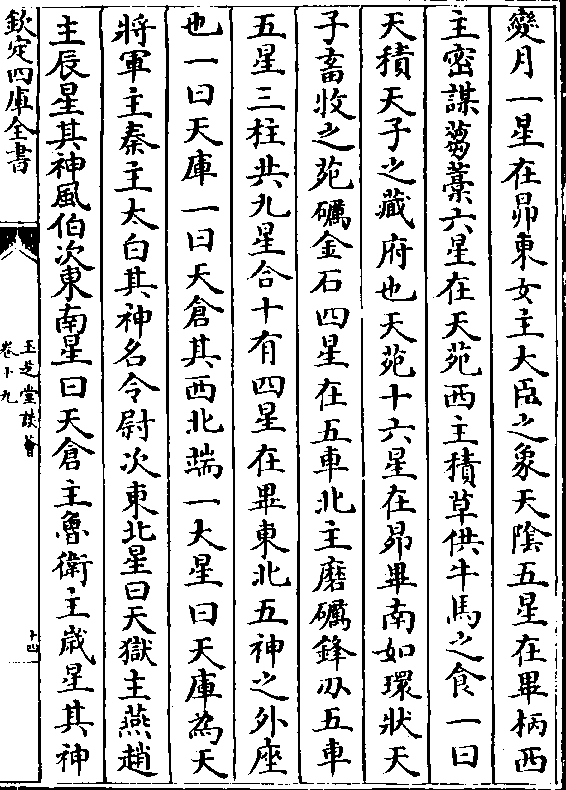 變月一星在昴東女主大臣之象天陰五星在畢柄西
主密謀蒭藁六星在天苑西主積草供牛馬之食一曰
天積天子之藏府也天苑十六星在昴畢南如環狀天
子畜牧之苑礪金石四星在五車北主磨礪鋒刃五車
五星三柱共九星合十有四星在畢東北五神之外座
也一曰天庫一曰天倉其西北端一大星曰天庫為天
將軍主秦主太白其神名令尉次東北星曰天獄主燕趙
主辰星其神風伯次東南星曰天倉主魯衛主歲星其神
欽定四庫全書
玉芝堂談薈
卷十九
十四